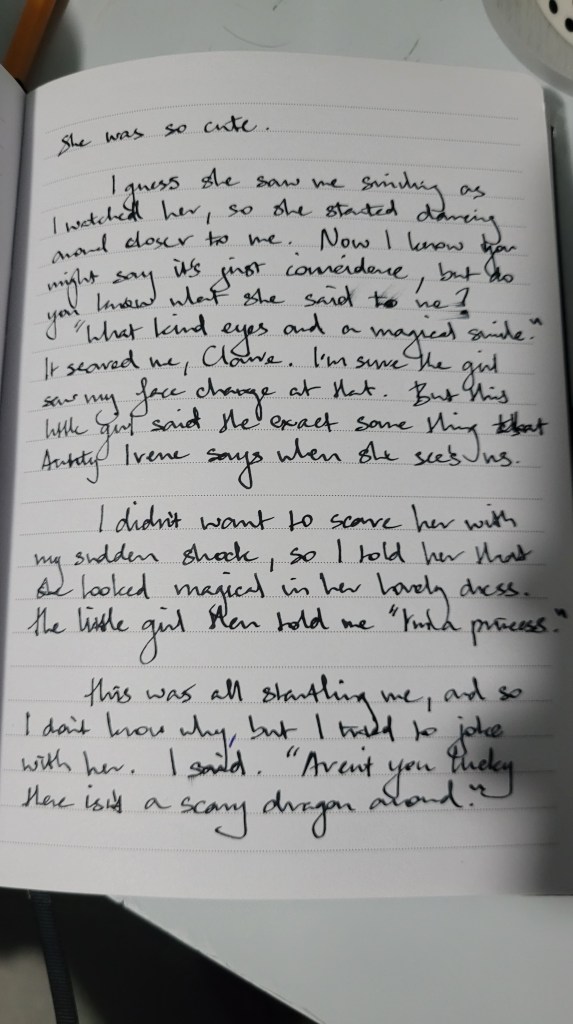 She was so cute.
I guess she saw me smiling as
I watched her, so she started dancing
around closer to me. Now I know you
might say it's just coincidence, but do
you know what she said to me?
"What kind eyes and a magical smile."
It scared me, Claire. I'm sure the girl
saw my face change at that. But this
little girl said the exact same thing that
Aunty Irene says when she sees us.
I didn't want to scare her with
my sudden shock, so I told her that
she looked magical in her lovely dress.
The little girl then told me "I'm a princess."
This was all startling me, and so
I don't know why, but I tried to joke
with her. I said. "Aren't you lucky
there isn't a scary dragon around."